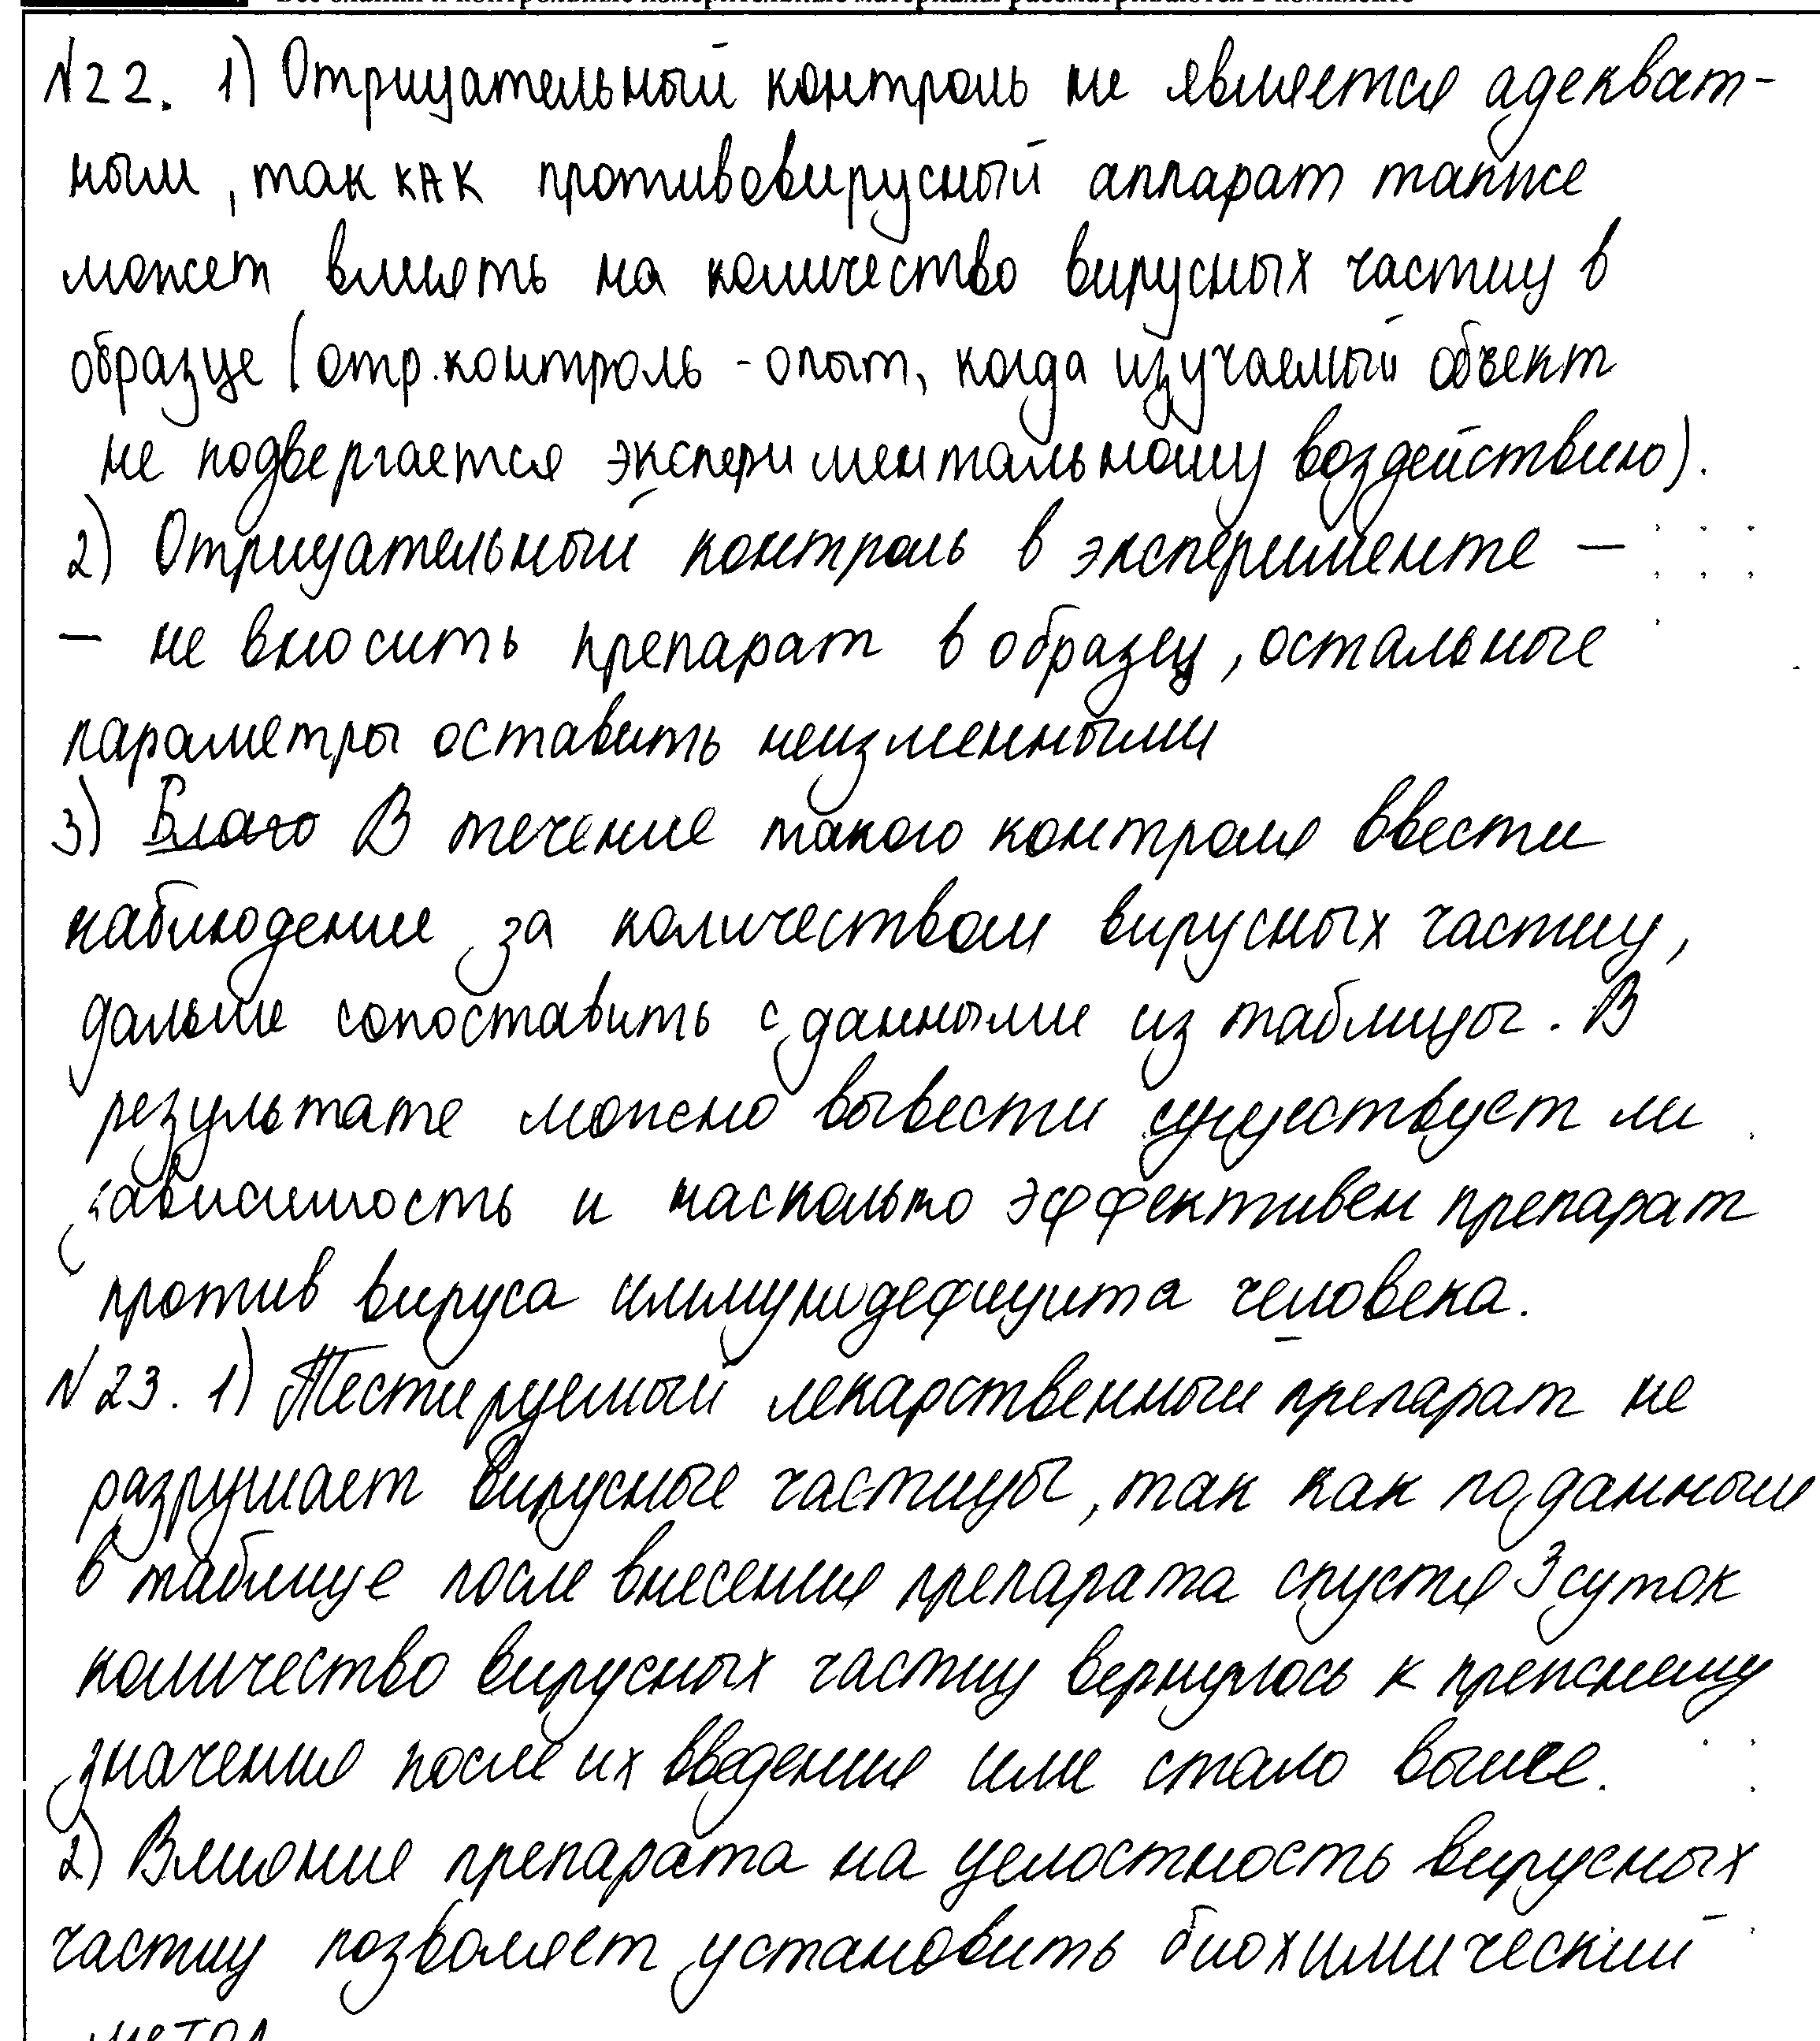 Все бланки и контрольные измерительные материалы рассматриваются в комплекте
№22. 1) Отрицательный контроль не является адекват-
ным, так как противовирусный аппарат также
может влиять на количество вирусных частиц в
образце (отр. контроль - опыт, когда изучаемый объект
не подвергается экспериментальному воздействию).
2) Отрицательный контроль в эксперименте —
— не вносить препарат в образец, остальные
параметры оставить неизменными
3) Благо В течение такого контроля ввести
наблюдение за количеством вирусных частиц,
дальше сопоставить с данными из таблицы. В
результате можно вывести существует ли
зависимость и насколько эффективен препарат
против вируса иммунодефицита человека.
№23. 1) Тестируемый лекарственный препарат не
разрушает вирусные частицы, так как по данным
в таблице после внесения препарата спустя 3 суток
количество вирусных частиц вернулось к прежнему
значения после их введения или стало выше.
2) Влияние препарата на целостность вирусных
частиц позволяет установить биохимический
метод